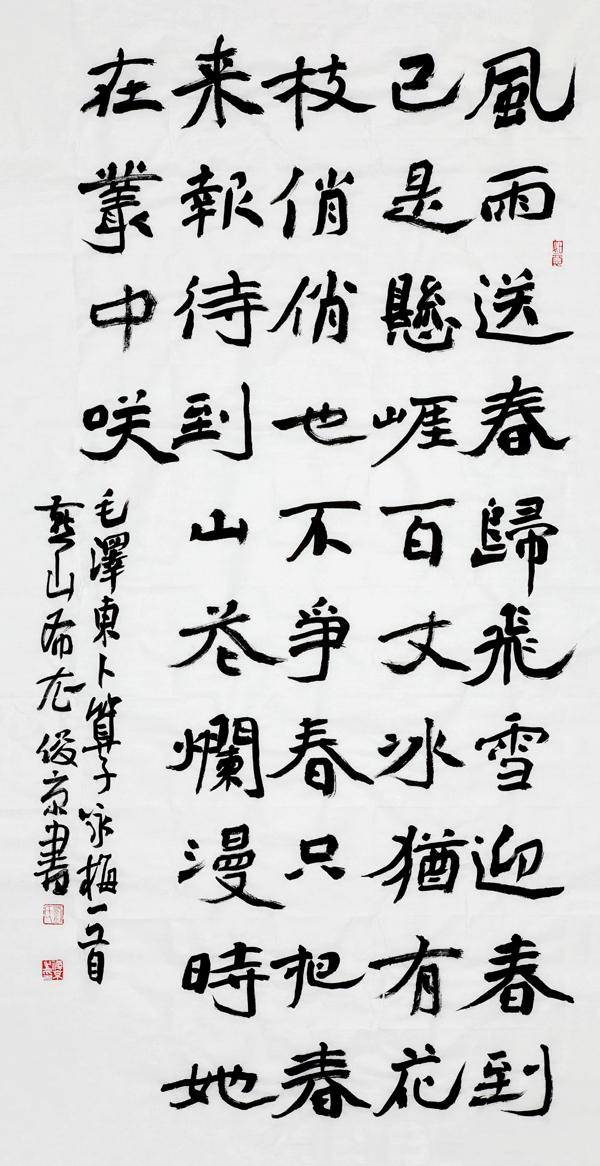 風雨送春歸飛雪迎春到
已是懸崕百丈冰猶有花
枝俏俏也不爭春只把春
来報待到山花爛漫時她
在叢中咲
毛澤東卜算子咏梅一首
燕山俊京書